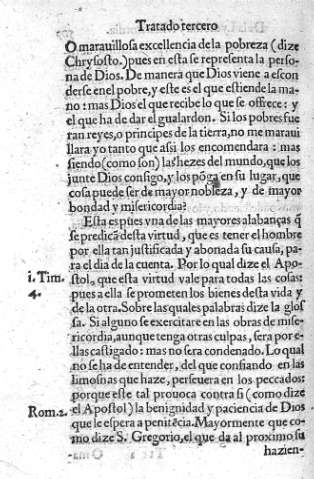 Tratado tercero
O marauillosa excellencia de la pobreza (dize
Chrysosto.) pues en esta se representa la perso-
na de Dios. De manera que Dios viene a escon
derse en el pobre, y este es el que estiende la ma-
no: mas Dios el que recibe lo que se offrece: y
el que ha de dar el gualardon. Si los pobres fue
ran reyes, o principes de la tierra, no me maraui
llara yo tanto que assi los encomendara: mas
siendo (como son) las hezes del mundo, que los
junte Dios consigo, y los põga en su lugar, que
cosa puede ser de mayor nobleza, y de mayor
bondad y misericordia?
Esta es pues vna de las mayores alabanças q̃
se predicã desta virtud, que es tener el hombre
por ella tan justificada y abonada su causa, pa-
ra el dia de la cuenta. Por lo qual dize el Apo-
1. Tim. stol, que esta virtud vale para todas las cosas:
4. pues a ella se prometen los bienes desta vida y
de la otra. Sobre las quales palabras dize la glos
sa. Si alguno se exercitare en las obras de mise-
ricordia, aunque tenga otras culpas, sera por e-
llas castigado: mas no sera condenado. Lo qual
no se ha de entender, del que confiando en las
limosnas que haze, perseuera en los peccados:
porque este tal prouoca contra si (como dize
Rom. 2. el Apostol) la benignidad y paciencia de Dios
que le espera a penitẽcia. Mayormente que co-
mo dize S. Gregorio, el que da al proximo su
hazien-